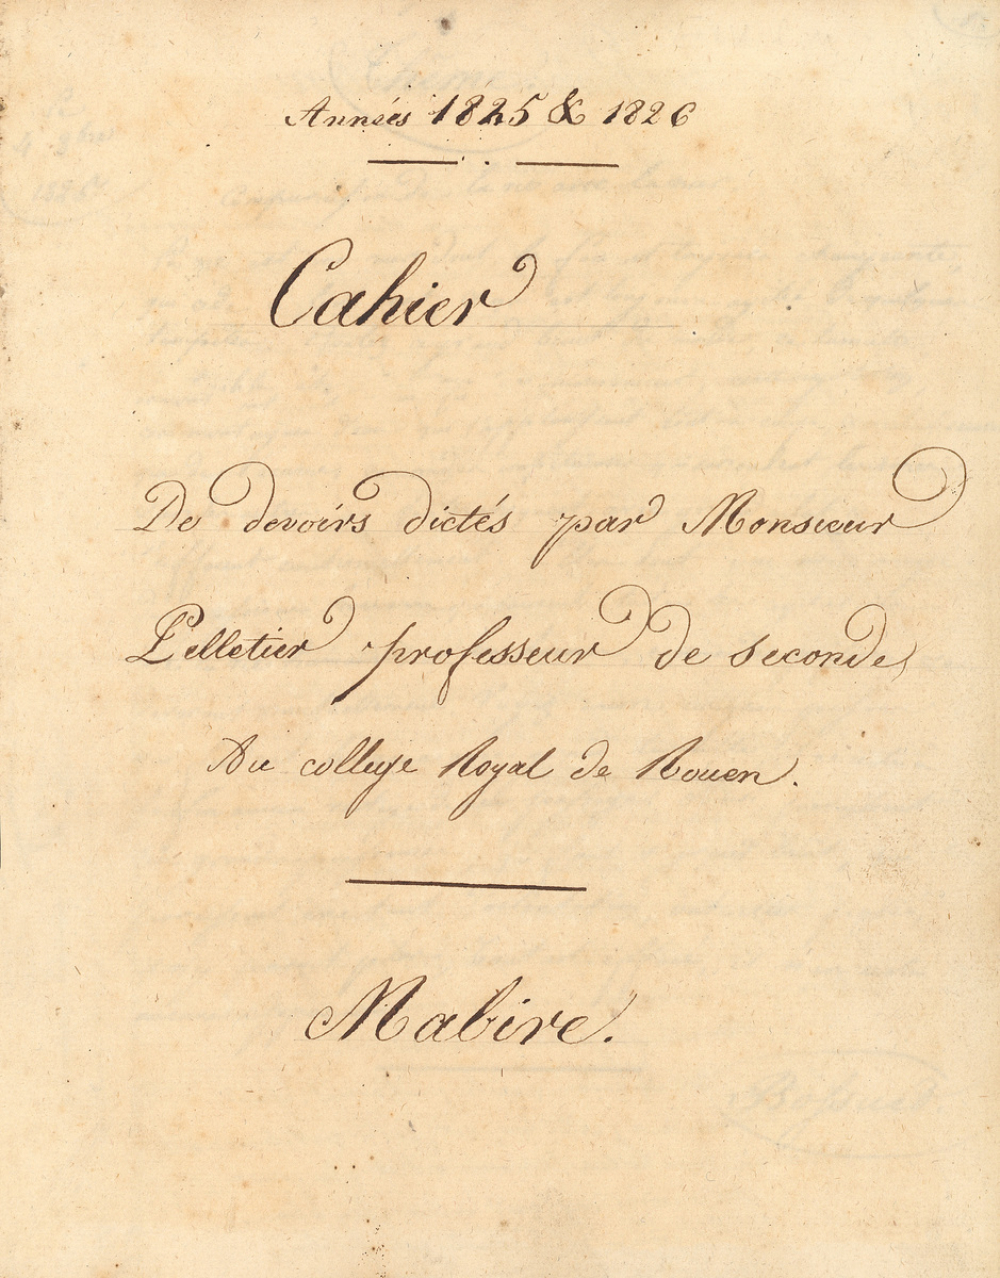 Années 1825 & 1826
Cahier
De devoirs dictés par Monsieur
Pelletier professeur de seconde
Au college Royal de Rouen.
Mabire.